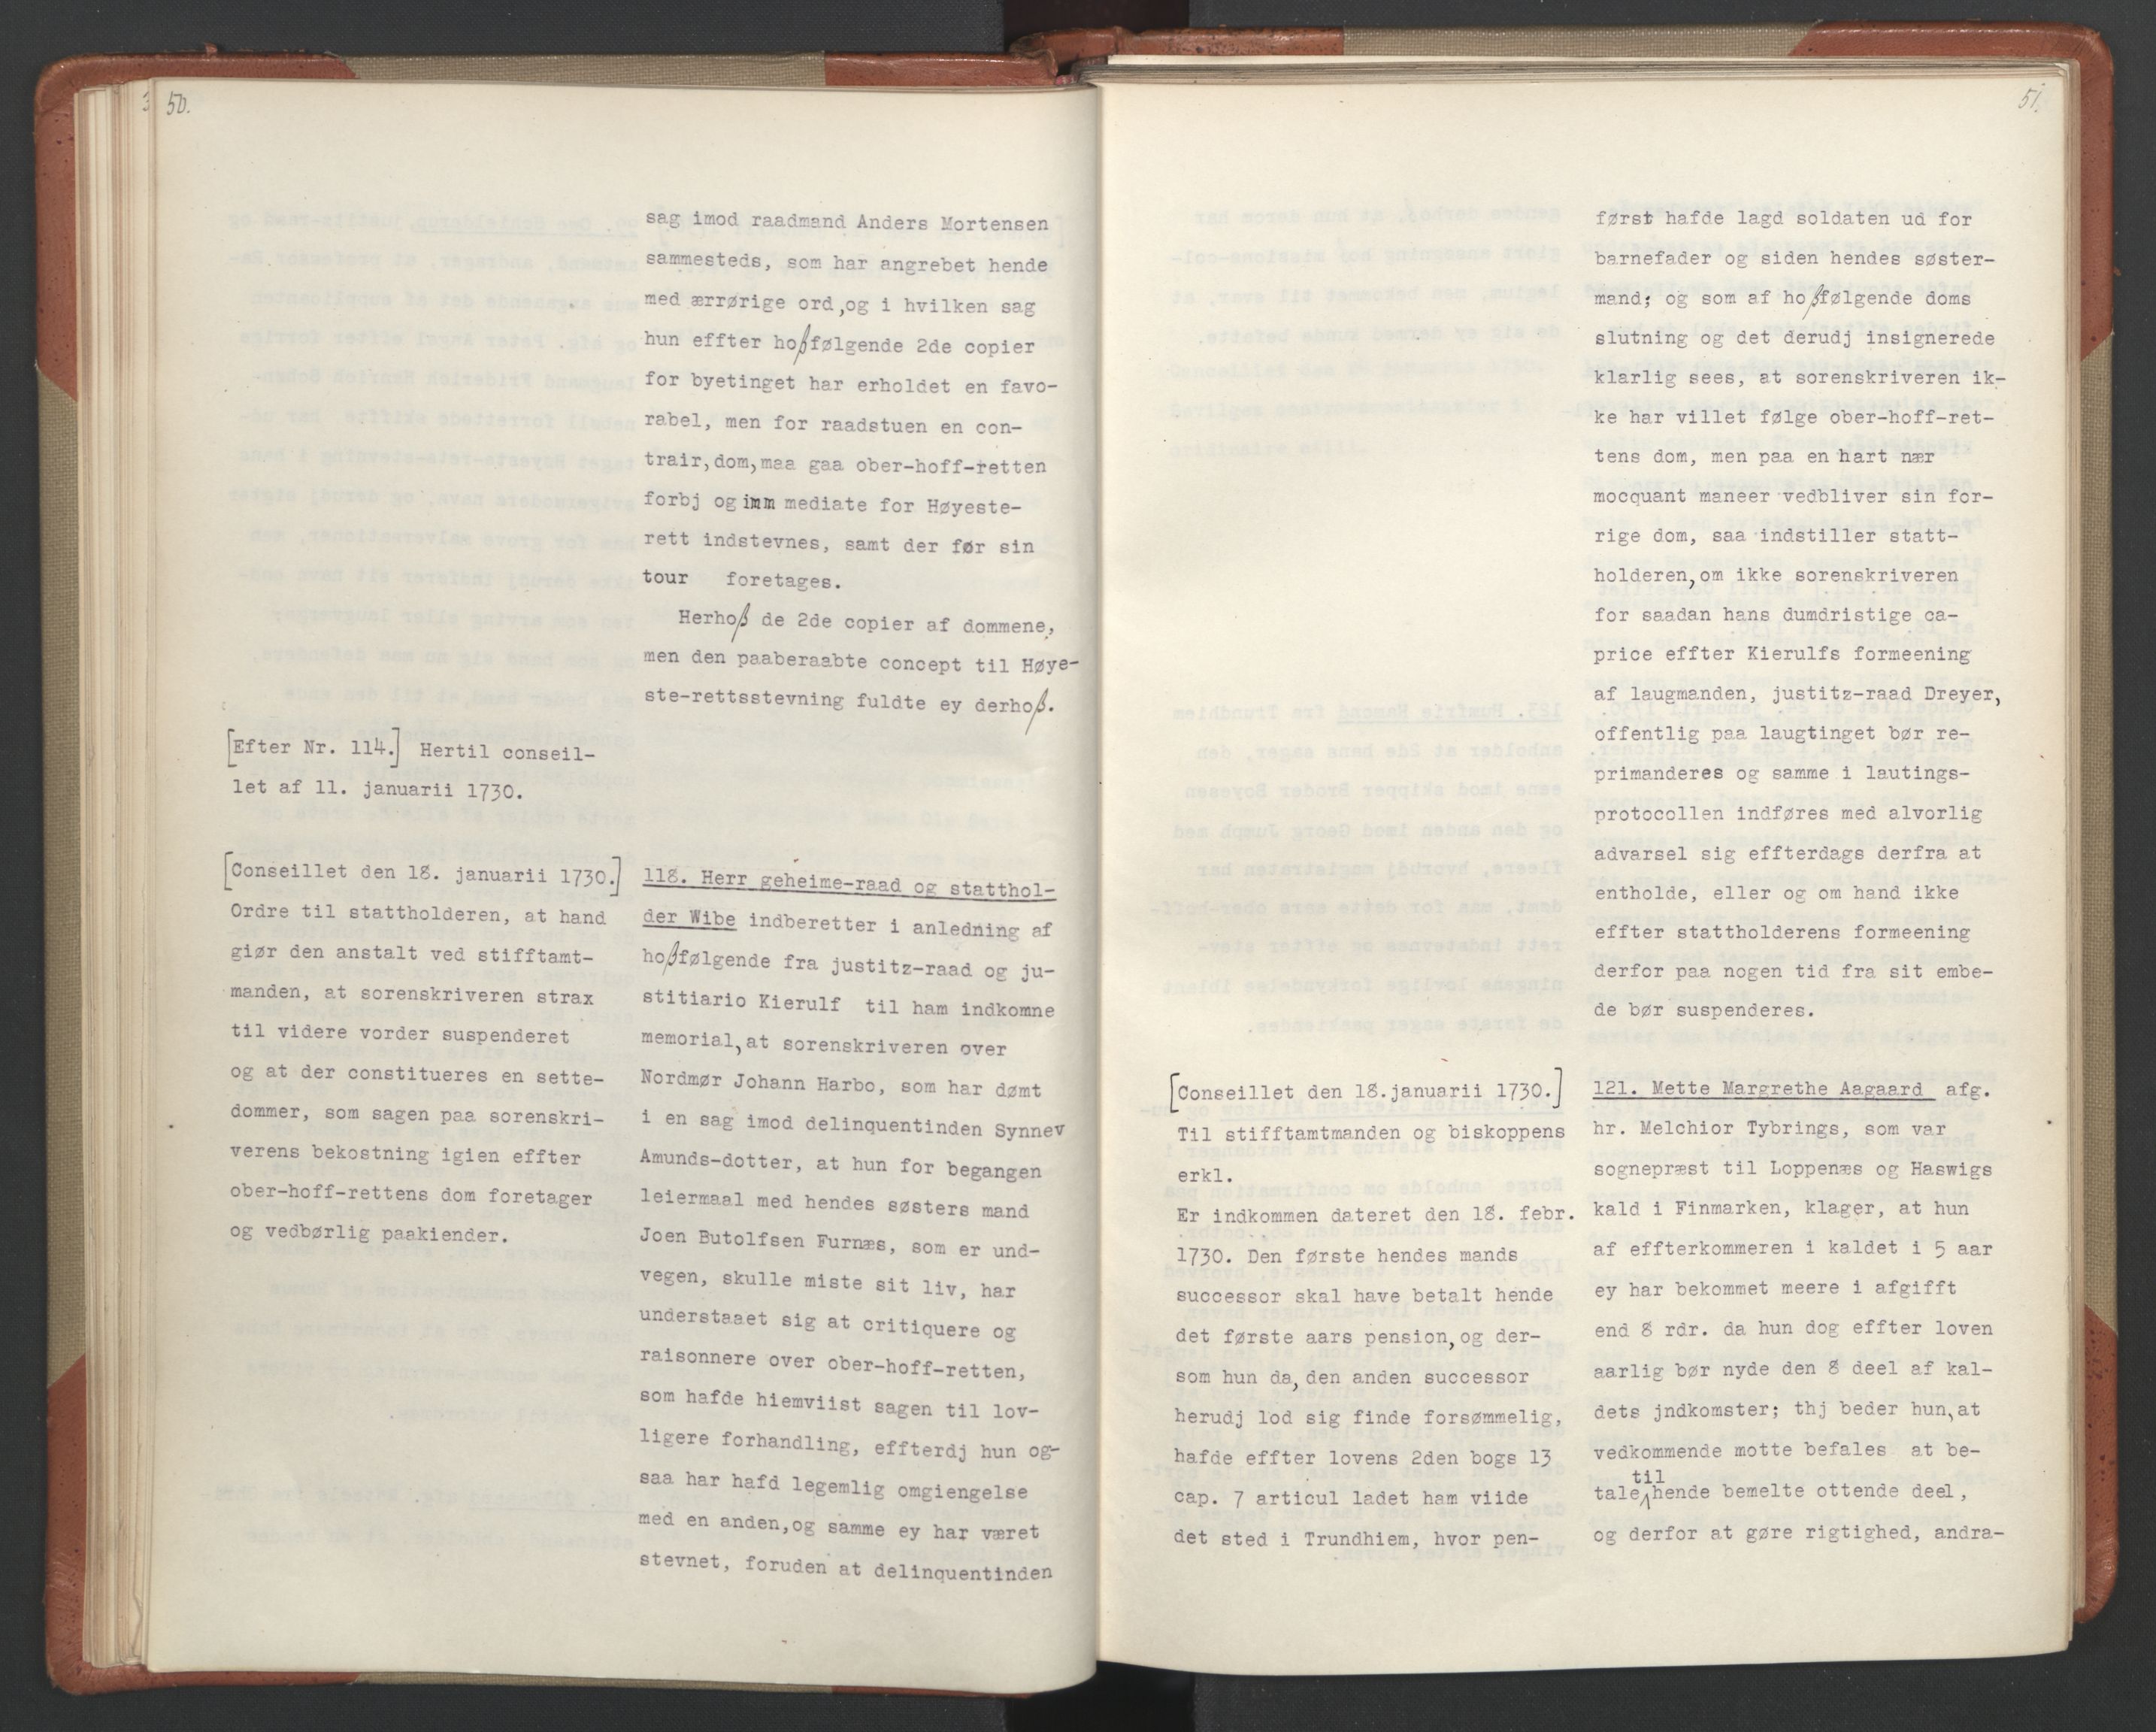 50.
sag imod raadmand Anders Mortensen
sammesteds, som har angrebet hende
med ærrørige ord,og i hvilken sag
hun effter hoßfølgende 2de copier
for byetinget har erholdet en favo-
rabel, men for raadstuen en con-
trair,dom,maa gaa ober-hoff-retten
forbj og immmediate for Høyeste-
rett indstevnes, samt der før sin
tour foretages.
Herhoß de 2de copier af dommene,
men den paaberaabte concept til Høye-
ste-rettsstevning fuldte ey derhoß.
[Efter Nr. 114.] Hertil conseil-
let af 11. januarii 1730.
[Conseillet den 18. januarii 1730.]
Ordre til stattholderen, at hand
giør den anstalt ved stifftamt-
manden, at sorenskriveren strax
til videre vorder suspenderet
og at der constitueres en sette-
dommer, som sagen paa sorenskri-
verens bekostning igien effter
ober-hoff-rettens dom foretager
og vedbørlig paakiender.
118. Herr geheime-raad og statthol-
der Wibe indberetter i anledning af
hoßfølgende fra justitz-raad og ju-
stitiario Kierulf til ham indkomne
memorial,at sorenskriveren over
Nordmør Johann Harbo, som har dømt
i en sag imod delinquentinden Synnev
Amunds-dotter, at hun for begangen
leiermaal med hendes søsters mand
Joen Butolfsen Furnæs, som er und-
vegen, skulle miste sit liv, har
understaaet sig at critiquere og
raisonnere over ober-hoff-retten,
som hafde hiemviist sagen til lov-
ligere forhandling, effterdj hun og-
saa har hafd legemlig omgiengelse
med en anden,og samme ey har været
stevnet, foruden at delinquentinden
51.
først hafde lagd soldaten ud for
barnefader og siden hendes søster-
mand; og som af hoßfølgende doms
slutning og det derudj insignerede
klarlig sees, at sorenskriveren ik-
ke har villet følge ober-hoff-ret-
tens dom, men paa en hart nær
mocquant maneer vedbliver sin for-
rige dom, saa indstiller statt-
holderen,om ikke sorenskriveren
for saadan hans dumdristige ca-
price effter Kierulfs formeening
af laugmanden, justitz-raad Dreyer,
offentlig paa laugtinget bør re-
primanderes og samme i lautings-
protocollen indføres med alvorlig
advarsel sig effterdags derfra at
entholde, eller og om hand ikke
effter stattholderens formeening
derfor paa nogen tid fra sit embe-
de bør suspenderes.
[Conseillet den 18.januarii 1730.]
Til stifftamtmanden og biskoppens
erkl.
Er indkommen dateret den 18. febr.
1730. Den første hendes mands
successor skal have betalt hende
det første aars pension,og der-
som hun da,den anden successor
herudj lod sig finde forsømmelig,
hafde effter lovens 2den bogs 13
cap. 7 articul ladet ham viide
det sted i Trundhiem, hvor pen-
121. Mette Margrethe Aagaard afg.
hr. Melchior Tybrings, som var
sognepræst til Loppenæs og Haswigs
kald i Finmarken, klager, at hun
af effterkommeren i kaldet i 5 aar
ey har bekommet meere i afgifft
end 8 rdr. da hun dog effter loven
aarlig bør nyde den 8 deel af kal-
dets jndkomster; thj beder hun,at
vedkommende motte befales at be-
til
tale hende bemelte ottende deel,
og derfor at gøre rigtighed, andra-